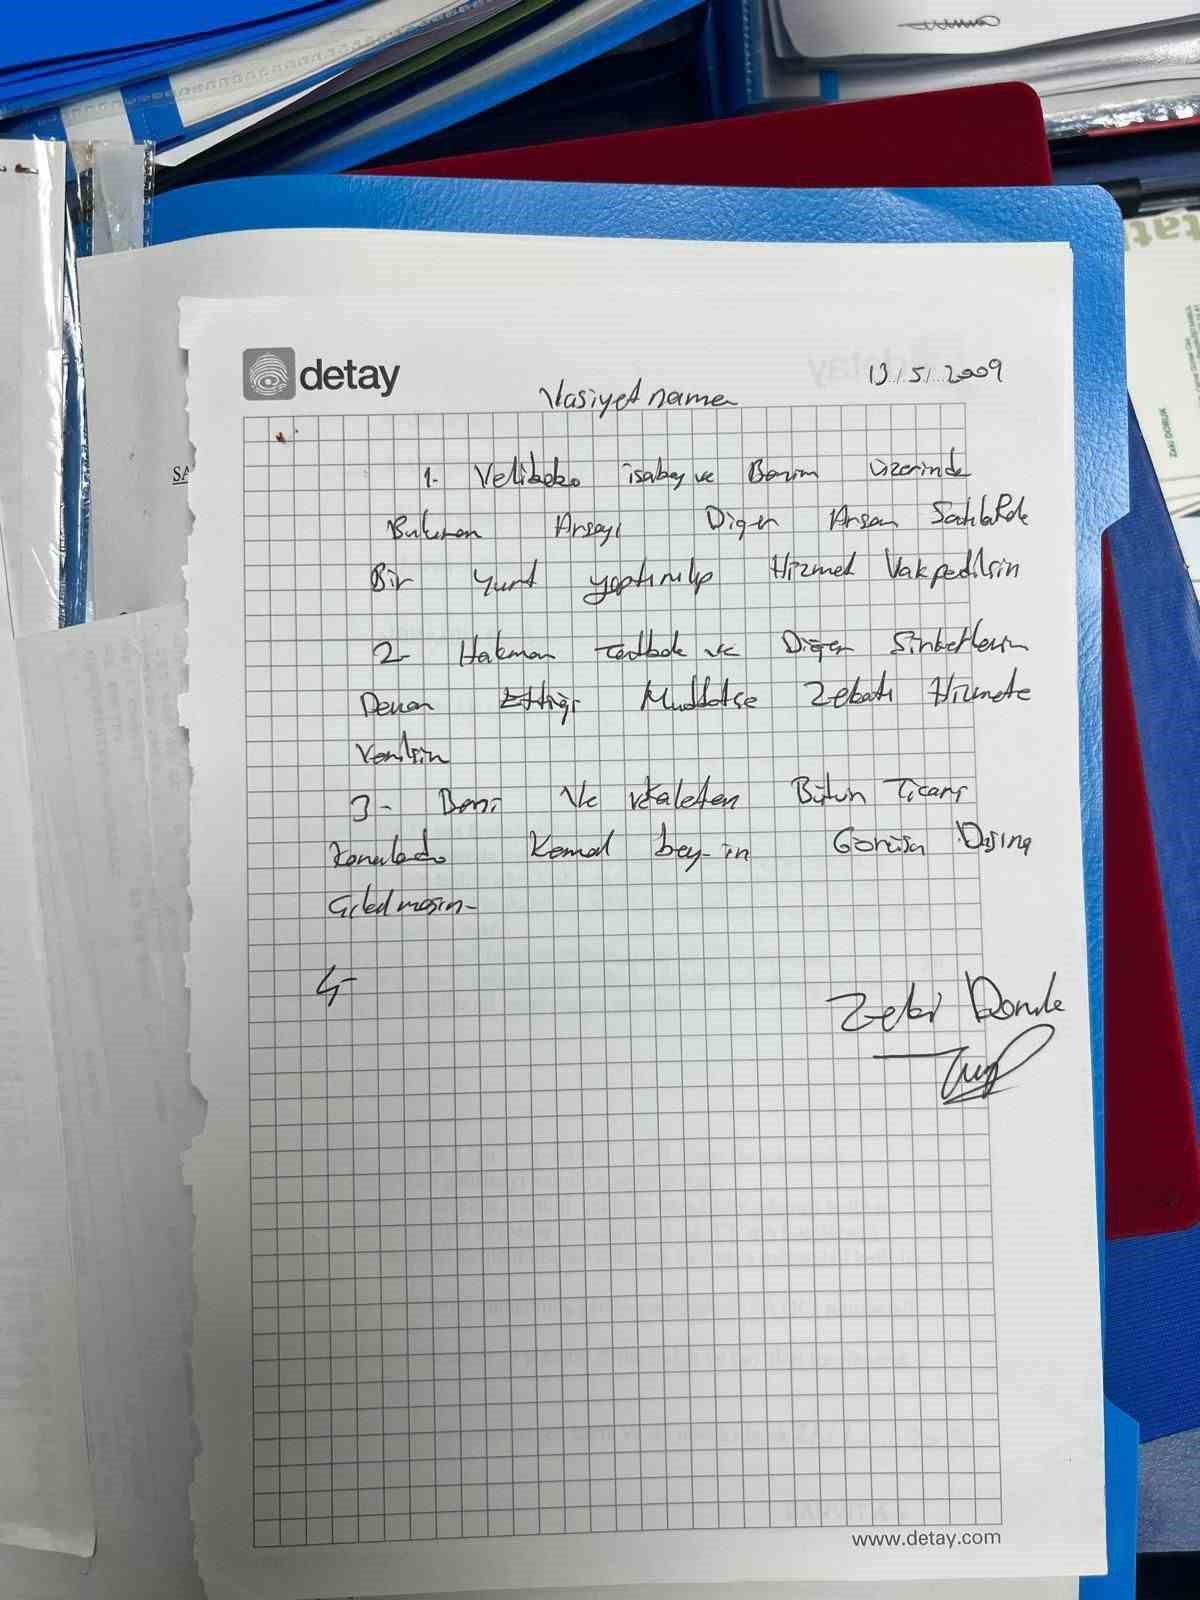 detay
13/5/2009
Vasiyet name
1. Velibaba isabey ve Benim üzerinde
Bulunan Arsayı Diger Arsan
Bir Yurt yaptırılıp Hizmet Vakpedilsin
2- Hakman ve Diger Sirketlerin
Devam Ettigi Muddetce Zekatı Hizmete
Verilsin
3- Beni Ve vekaleten Bütun Ticari
Konularda Kemal bey-in Görüsü Dısına
Cıkılmasın-
4-
Zeki Doruk
www.detay.com
SA
ZEKİ DORUK